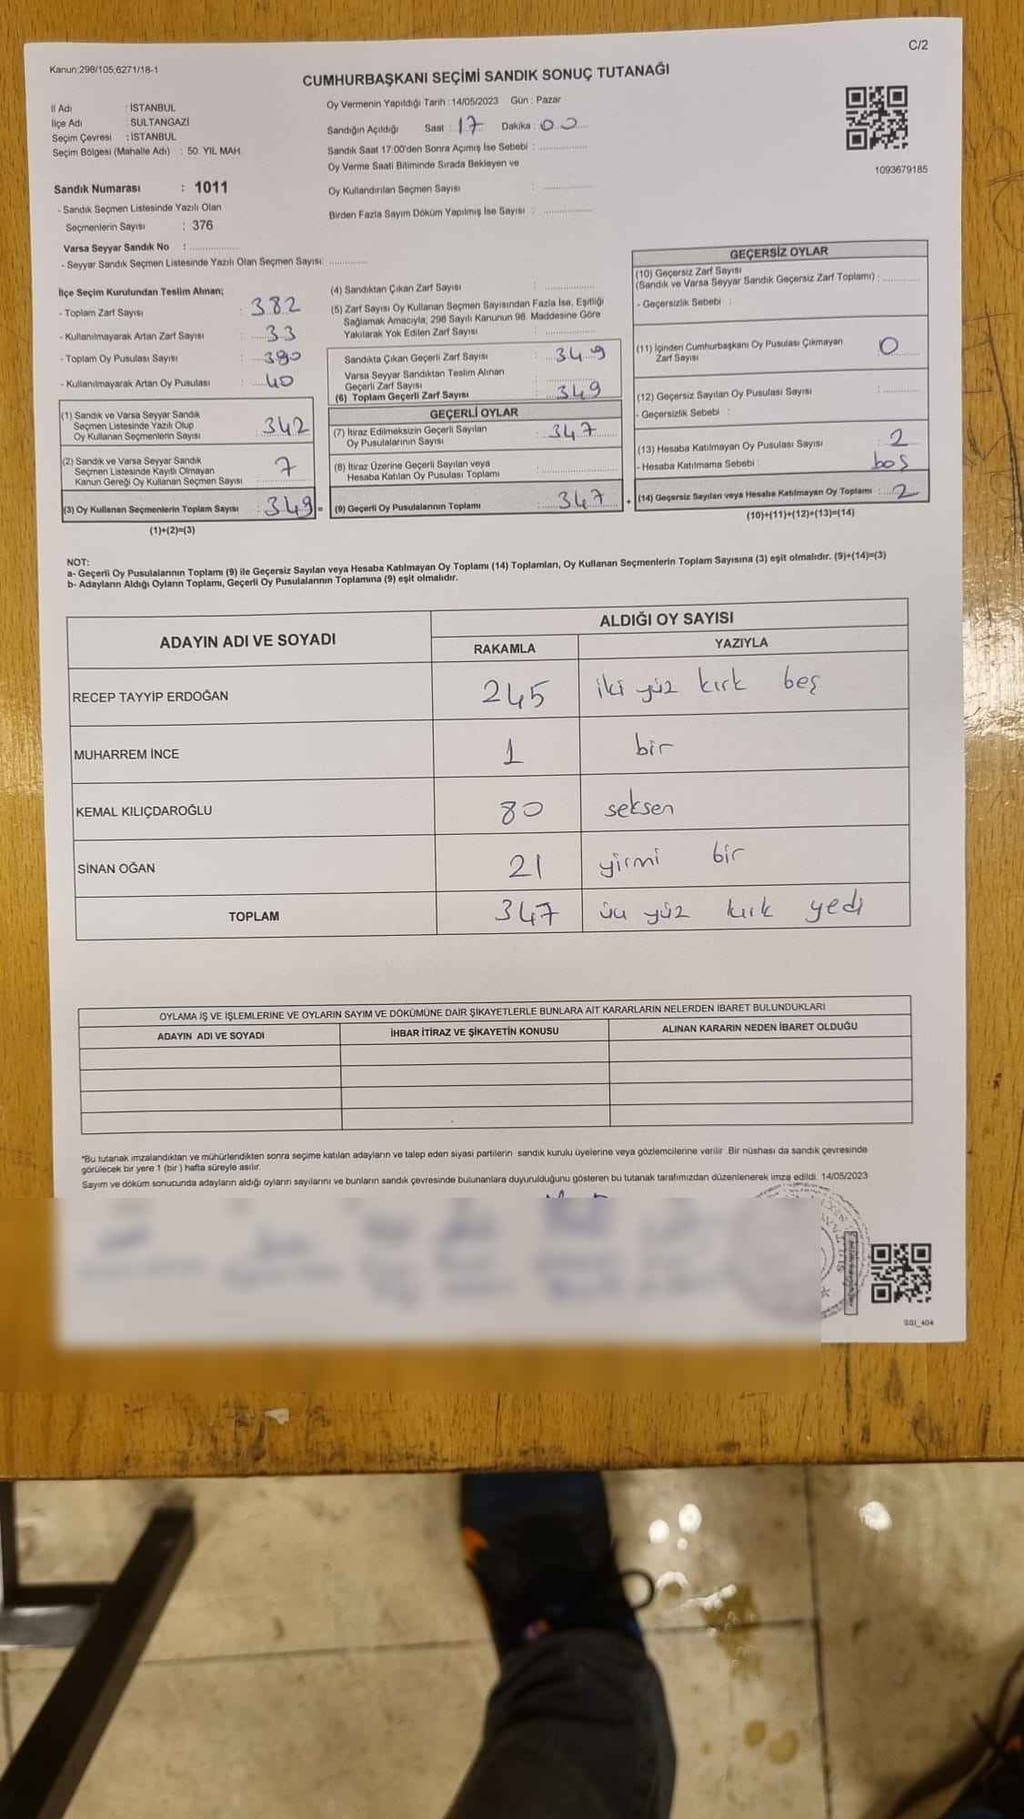 C/2
Kanun:298/105,6271/18-1
CUMHURBAŞKANI SEÇİMİ SANDIK SONUÇ TUTANAĞI
İl Adı : İSTANBUL
İlçe Adı : SULTANGAZİ
Seçim Çevresi : İSTANBUL
Seçim Bölgesi (Mahalle Adı) : 50. YIL MAH.
Oy Vermenin Yapıldığı Tarih : 14/05/2023 Gün : Pazar
Sandığın Açıldığı Saat : 17 Dakika : 00
Sandık Saat 17:00'den Sonra Açımış İse Sebebi :
Oy Verme Saati Bitiminde Sırada Bekleyen ve
Oy Kullandırılan Seçmen Sayısı :
Birden Fazla Sayım Döküm Yapılmış İse Sayısı :
1093679185
Sandık Numarası : 1011
- Sandık Seçmen Listesinde Yazılı Olan
Seçmenlerin Sayısı : 376
Varsa Seyyar Sandık No :
- Seyyar Sandık Seçmen Listesinde Yazılı Olan Seçmen Sayısı:
İlçe Seçim Kurulundan Teslim Alınan;
- Toplam Zarf Sayısı : 382
- Kullanılmayarak Artan Zarf Sayısı : 33
- Toplam Oy Pusulası Sayısı : 380
- Kullanılmayarak Artan Oy Pusulası : 40
(1) Sandık ve Varsa Seyyar Sandık
Seçmen Listesinde Yazılı Olup
Oy Kullanan Seçmenlerin Sayısı : 342
(2) Sandık ve Varsa Seyyar Sandık
Seçmen Listesinde Kayıtlı Olmayan
Kanun Gereği Oy Kullanan Seçmen Sayısı : 7
(3) Oy Kullanan Seçmenlerin Toplam Sayısı : 349 =
(1)+(2)=(3)
(4) Sandıktan Çıkan Zarf Sayısı :
(5) Zarf Sayısı Oy Kullanan Seçmen Sayısından Fazla İse, Eşitliği
Sağlamak Amacıyla, 298 Sayılı Kanunun 98. Maddesine Göre
Yakılarak Yok Edilen Zarf Sayısı :
Sandıkta Çıkan Geçerli Zarf Sayısı : 349
Varsa Seyyar Sandıktan Teslim Alınan
Geçerli Zarf Sayısı :
(6) Toplam Geçerli Zarf Sayısı : 349
GEÇERLİ OYLAR
(7) İtiraz Edilmeksizin Geçerli Sayılan
Oy Pusulalarının Sayısı : 347
(8) İtiraz Üzerine Geçerli Sayılan veya
Hesaba Katılan Oy Pusulası Toplamı :
(9) Geçerli Oy Pusulalarının Toplamı : 347 +
GEÇERSİZ OYLAR
(10) Geçersiz Zarf Sayısı
(Sandık ve Varsa Seyyar Sandık Geçersiz Zarf Toplamı) :
- Geçersizlik Sebebi :
(11) İçinden Cumhurbaşkanı Oy Pusulası Çıkmayan
Zarf Sayısı : 0
(12) Geçersiz Sayılan Oy Pusulası Sayısı :
- Geçersizlik Sebebi :
(13) Hesaba Katılmayan Oy Pusulası Sayısı : 2
- Hesaba Katılmama Sebebi : boş
(14) Geçersiz Sayılan veya Hesaba Katılmayan Oy Toplamı : 2
(10)+(11)+(12)+(13)=(14)
NOT:
a- Geçerli Oy Pusulalarının Toplamı (9) ile Geçersiz Sayılan veya Hesaba Katılmayan Oy Toplamı (14) Toplamları, Oy Kullanan Seçmenlerin Toplam Sayısına (3) eşit olmalıdır. (9)+(14)=(3)
b- Adayların Aldığı Oyların Toplamı, Geçerli Oy Pusulalarının Toplamına (9) eşit olmalıdır.
ADAYIN ADI VE SOYADI ALDIĞI OY SAYISI
RAKAMLA YAZIYLA
RECEP TAYYİP ERDOĞAN 245 iki yüz kırk beş
MUHARREM İNCE 1 bir
KEMAL KILIÇDAROĞLU 80 seksen
SİNAN OĞAN 21 yirmi bir
TOPLAM 347 üü yüz kırk yedi
OYLAMA İŞ VE İŞLEMLERİNE VE OYLARIN SAYIM VE DÖKÜMÜNE DAİR ŞİKAYETLERLE BUNLARA AİT KARARLARIN NELERDEN İBARET BULUNDUKLARI
ADAYIN ADI VE SOYADI İHBAR İTİRAZ VE ŞİKAYETİN KONUSU ALINAN KARARIN NEDEN İBARET OLDUĞU
*Bu tutanak imzalandıktan ve mühürlendikten sonra seçime katılan adayların ve talep eden siyasi partilerin sandık kurulu üyelerine veya gözlemcilerine verilir. Bir nüshası da sandık çevresinde
görülecek bir yere 1 (bir) hafta süreyle asılır.
Sayım ve döküm sonucunda adayların aldığı oyların sayılarını ve bunların sandık çevresinde bulunanlara duyurulduğunu gösteren bu tutanak tarafımızdan düzenlenerek imza edildi. 14/05/2023